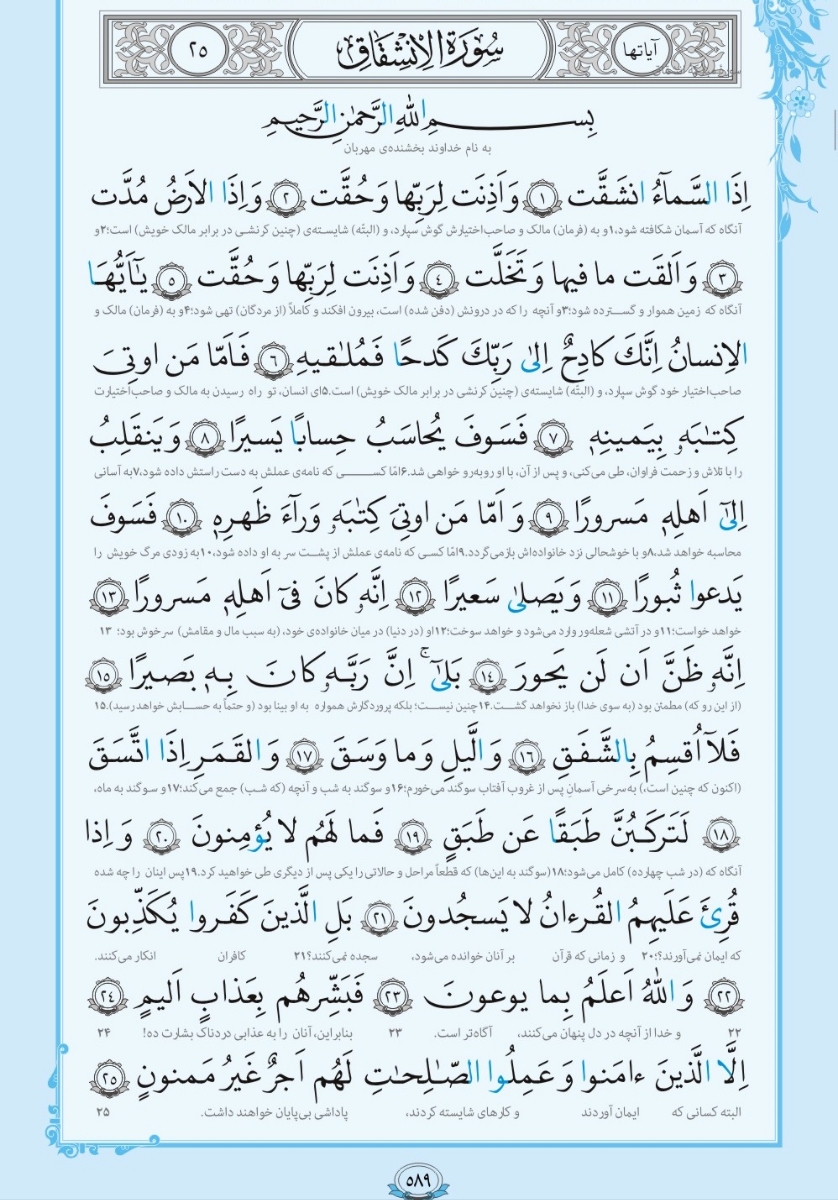 آیاتها سُورَةُ الاِنشِقاقِ ٢٥
بِسمِ اللهِ الرَّحمٰنِ الرَّحیمِ
به نام خداوند بخشنده‌ی مهربان
اِذَا السَّمآءُ انشَقَّت ١ وَ اَذِنَت لِرَبِّها وَ حُقَّت ٢ وَ اِذَا الاَرضُ مُدَّت
آنگاه که آسمان شکافته شود،۱و به (فرمان) مالک و صاحب‌اختیارش گوش سپارد، و (البتّه) شایسته‌ی (چنین کرنشی در برابر مالک خویش) است؛۲و
٣ وَ اَلقَت ما فیها وَ تَخَلَّت ٤ وَ اَذِنَت لِرَبِّها وَ حُقَّت ٥ یٰۤاَیُّهَا
آنگاه که زمین هموار و گسترده شود؛۳و آنچه را که در درونش (دفن شده) است، بیرون افکند و کاملاً (از مردگان) تهی شود؛۴و به (فرمان) مالک و
الاِنسانُ اِنَّكَ كادِحٌ اِلىٰ رَبِّكَ كَدحًا فَمُلٰقیهِ ٦ فَاَمّا مَن اوتِیَ
صاحب‌اختیار خود گوش سپارد، و (البتّه) شایسته‌ی (چنین کرنشی در برابر مالک خویش) است.۵ای انسان، تو راه رسیدن به مالک و صاحب‌اختیارت
كِتٰبَه‌و بِیَمینِه‌ی ٧ فَسَوفَ یُحاسَبُ حِسابًا یَسیرًا ٨ وَ یَنقَلِبُ
را با تلاش و زحمت فراوان، طی می‌کنی، و پس از آن، با او روبه‌رو خواهی شد.۶امّا کسی که نامه‌ی عملش به دست راستش داده شود،۷به آسانی
اِلىٰۤ اَهلِه‌ی مَسرورًا ٩ وَ اَمّا مَن اوتِیَ كِتٰبَه‌و وَرآءَ ظَهرِه‌ی ١٠ فَسَوفَ
محاسبه خواهد شد،۸و با خوشحالی نزد خانواده‌اش بازمی‌گردد.۹امّا کسی که نامه‌ی عملش از پشت سر به او داده شود،۱۰به زودی مرگ خویش را
یَدعوا ثُبورًا ١١ وَ یَصلىٰ سَعیرًا ١٢ اِنَّه‌و كانَ فیۤ اَهلِه‌ی مَسرورًا ١٣
خواهد خواست؛۱۱و در آتشی شعله‌ور وارد می‌شود و خواهد سوخت؛۱۲او (در دنیا) در میان خانواده‌ی خود، (به سبب مال و مقامش) سرخوش بود؛ ۱۳
اِنَّه‌و ظَنَّ اَن لَن یَحورَ ١٤ بَلىٰۤ ۚ اِنَّ رَبَّه‌و كانَ بِه‌ی بَصیرًا ١٥
(از این رو که) مطمئن بود (به سوی خدا) باز نخواهد گشت.۱۴چنین نیست؛ بلکه پروردگارش همواره به او بینا بود (و حتماً به حسابش خواهد رسید).۱۵
فَلاۤ اُقسِمُ بِالشَّفَقِ ١٦ وَ الَّیلِ وَ ما وَسَقَ ١٧ وَ القَمَرِ اِذَا اتَّسَقَ
(اکنون که چنین است،) به‌سرخی آسمان پس از غروب آفتاب سوگند می‌خورم؛۱۶و سوگند به شب و آنچه (که شب) جمع می‌کند؛۱۷و سوگند به ماه،
١٨ لَتَركَبُنَّ طَبَقًا عَن طَبَقٍ ١٩ فَما لَهُم لا یُؤمِنونَ ٢٠ وَ اِذا
آنگاه که (در شب چهارده) کامل می‌شود؛۱۸(سوگند به این‌ها) که قطعاً مراحل و حالاتی را یکی پس از دیگری طی خواهید کرد.۱۹پس اینان را چه شده
قُرِئَ عَلَیهِمُ القُرءانُ لا یَسجُدونَ ٢١ بَلِ الَّذینَ كَفَروا یُكَذِّبونَ
که ایمان نمی‌آورند؟؛۲۰ و زمانی که قرآن بر آنان خوانده می‌شود، سجده نمی‌کنند؟۲۱ کافران انکار می‌کنند.
٢٢ وَ اللهُ اَعلَمُ بِما یوعونَ ٢٣ فَبَشِّرهُم بِعَذابٍ اَلیمٍ ٢٤
۲۲ و خدا از آنچه در دل پنهان می‌کنند، آگاه‌تر است. ۲۳ بنابراین، آنان را به عذابی دردناک بشارت ده! ۲۴
اِلَّا الَّذینَ ءامَنوا وَ عَمِلُوا الصّٰلِحٰتِ لَهُم اَجرٌ غَیرُ مَمنونٍ ٢٥
البته کسانی که ایمان آوردند و کارهای شایسته کردند، پاداشی بی‌پایان خواهند داشت. ۲۵
٥٨٩